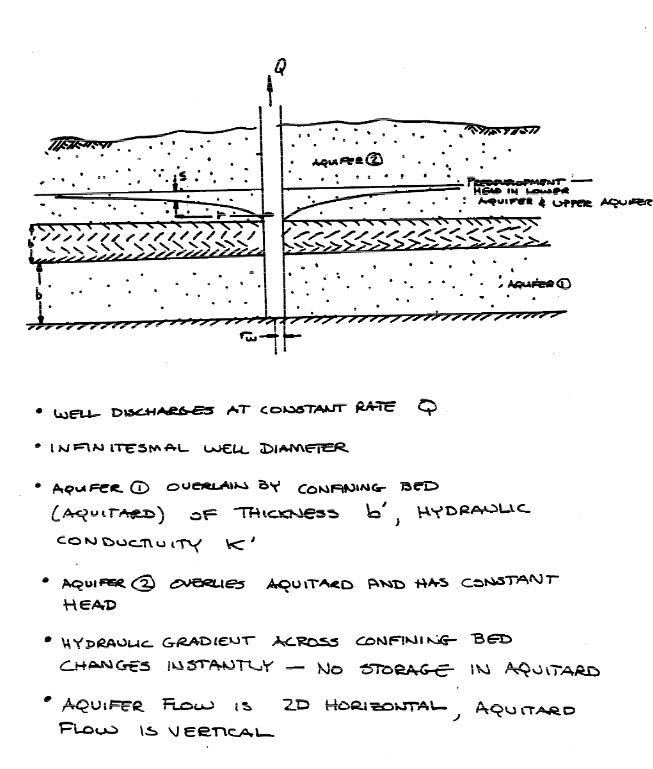 Q
AQUIFER ②
S
PREDEVELOPMENT
HEAD IN LOWER
AQUIFER & UPPER AQUIFER
r
b
AQUIFER ①
rw
• WELL DISCHARGES AT CONSTANT RATE Q
• INFINITESMAL WELL DIAMETER
• AQUIFER ① OVERLAIN BY CONFINING BED
(AQUITARD) OF THICKNESS b', HYDRAULIC
CONDUCTIVITY K'
• AQUIFER ② OVERLIES AQUITARD AND HAS CONSTANT
HEAD
• HYDRAULIC GRADIENT ACROSS CONFINING BED
CHANGES INSTANTLY – NO STORAGE IN AQUITARD
• AQUIFER FLOW IS 2D HORIZONTAL, AQUITARD
FLOW IS VERTICAL